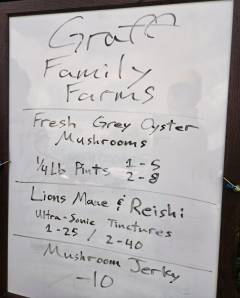 Graff
Family
Farms
Fresh Grey Oyster
Mushrooms
1/4 Lb Pints 1-5
2-8
Lions Mane & Reishi
Ultra-Sonic Tinctures
1-25 / 2-40
Mushroom Jerky
-10